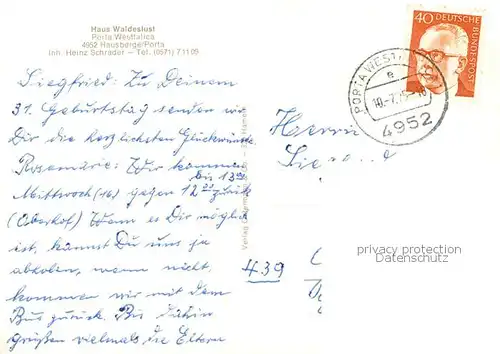 Haus Waldeslust
Porta Westfalica
4952 Hausberge/Porta
Inh. Heinz Schrader – Tel. (0571) 71105
Siegfried: Zu Deinem
31. Geburtstag senden wir
Dir die herzlichsten Glückwünsche
Rosemarie: Wir kommen
bis 13
Mittwoch (16) gegen 12 zurück
(Oberhof) Wenn es Dir möglich
ist, kannst Du uns ja
abholen, wenn nicht,
kommen wir mit dem
Bus zurück. Bis dahin
grüßen vielmals die Eltern
Verlag
40 DEUTSCHE BUNDESPOST
PORTA WEST
e
10.-7.
4952
Herrn
Sie
439
privacy protection
Datenschutz